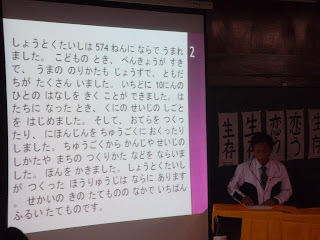 しょうとくたいしは 574 ねんに ならで うまれ
ました。 こどもの とき、 べんきょうが すき
で、 うまの のりかたも じょうずで、 ともだ
ちが たくさん いました。 いちどに 10にんの
ひとの はなしを きく ことが できました。 は
たちに なった とき、 くにの せいじの しごと
を はじめました。 そして、 おてらを つくっ
たり、 にほんじんを ちゅうごくに おくったり
しました。 ちゅうごくから かんじや せいじの
しかたや まちの つくりかた などを ならいま
した。 ほんを かきました。 しょうとくたいし
が つくった ほうりゅうじは ならに あります
が 。 せかいの きの たてものの なかで いちばん
ふるい たてものです。
2
生存
恋う
恋う
生存